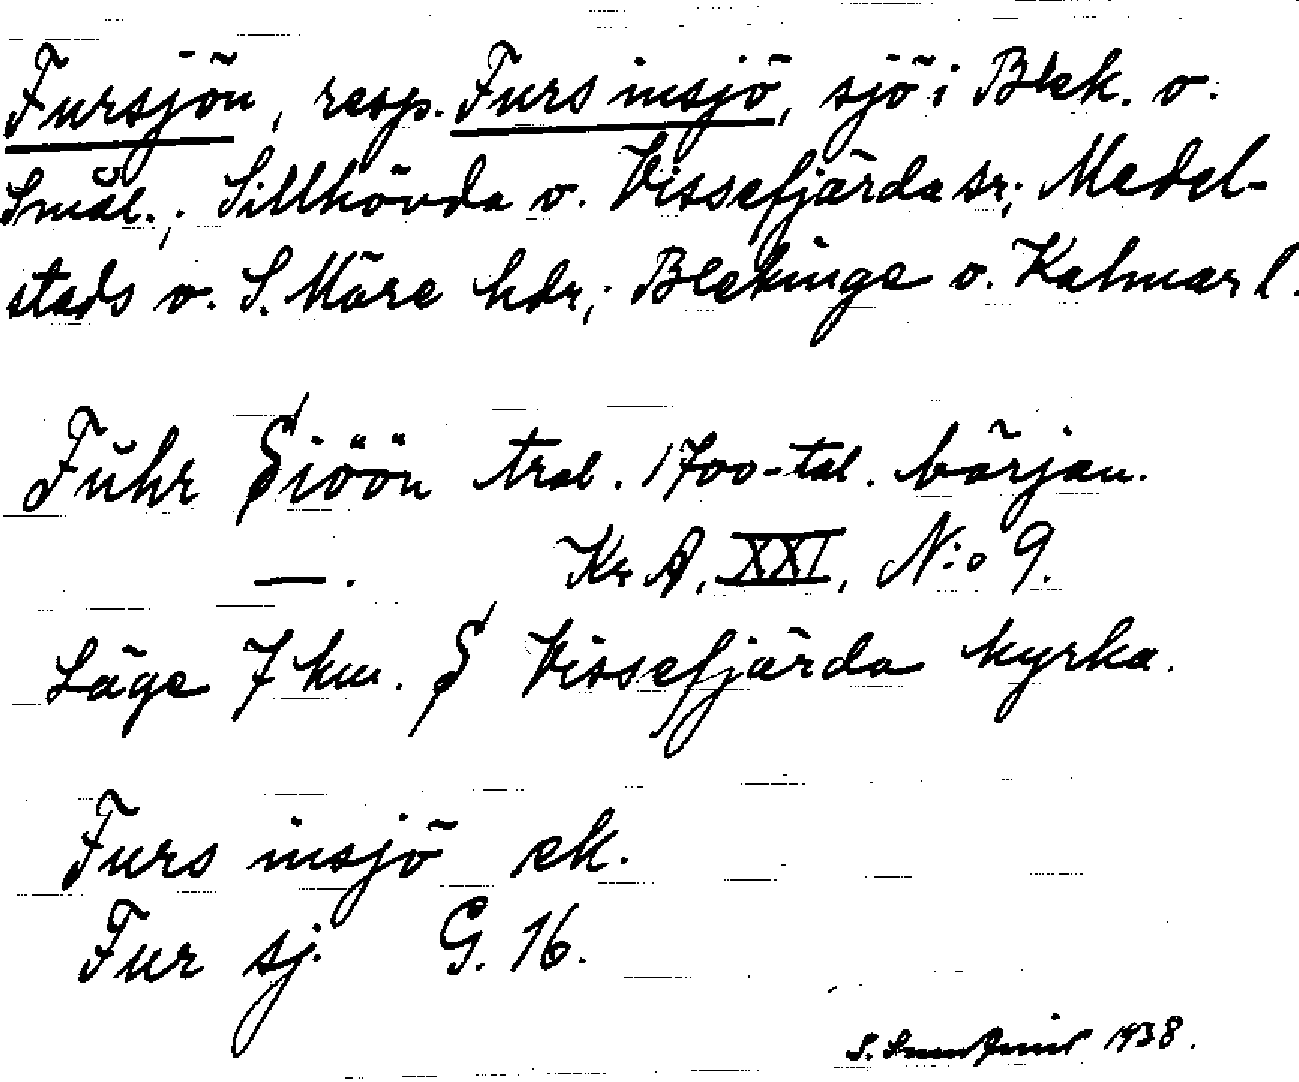 Fursjön, resp. Furs insjö, sjö i Blek. o.
Smål.; Sillhövda o. Vissefjärda sr; Medel-
stads o. S. Möre hdr; Blekinge o. Kalmar l.
Fuhr Siöön trol. 1700-tal. början.
—. Kr A, XXI, N:o 9.
Läge 7 km. S Vissefjärda kyrka.
Furs insjö ek.
Fur sj. G. 16.
S. 1938.